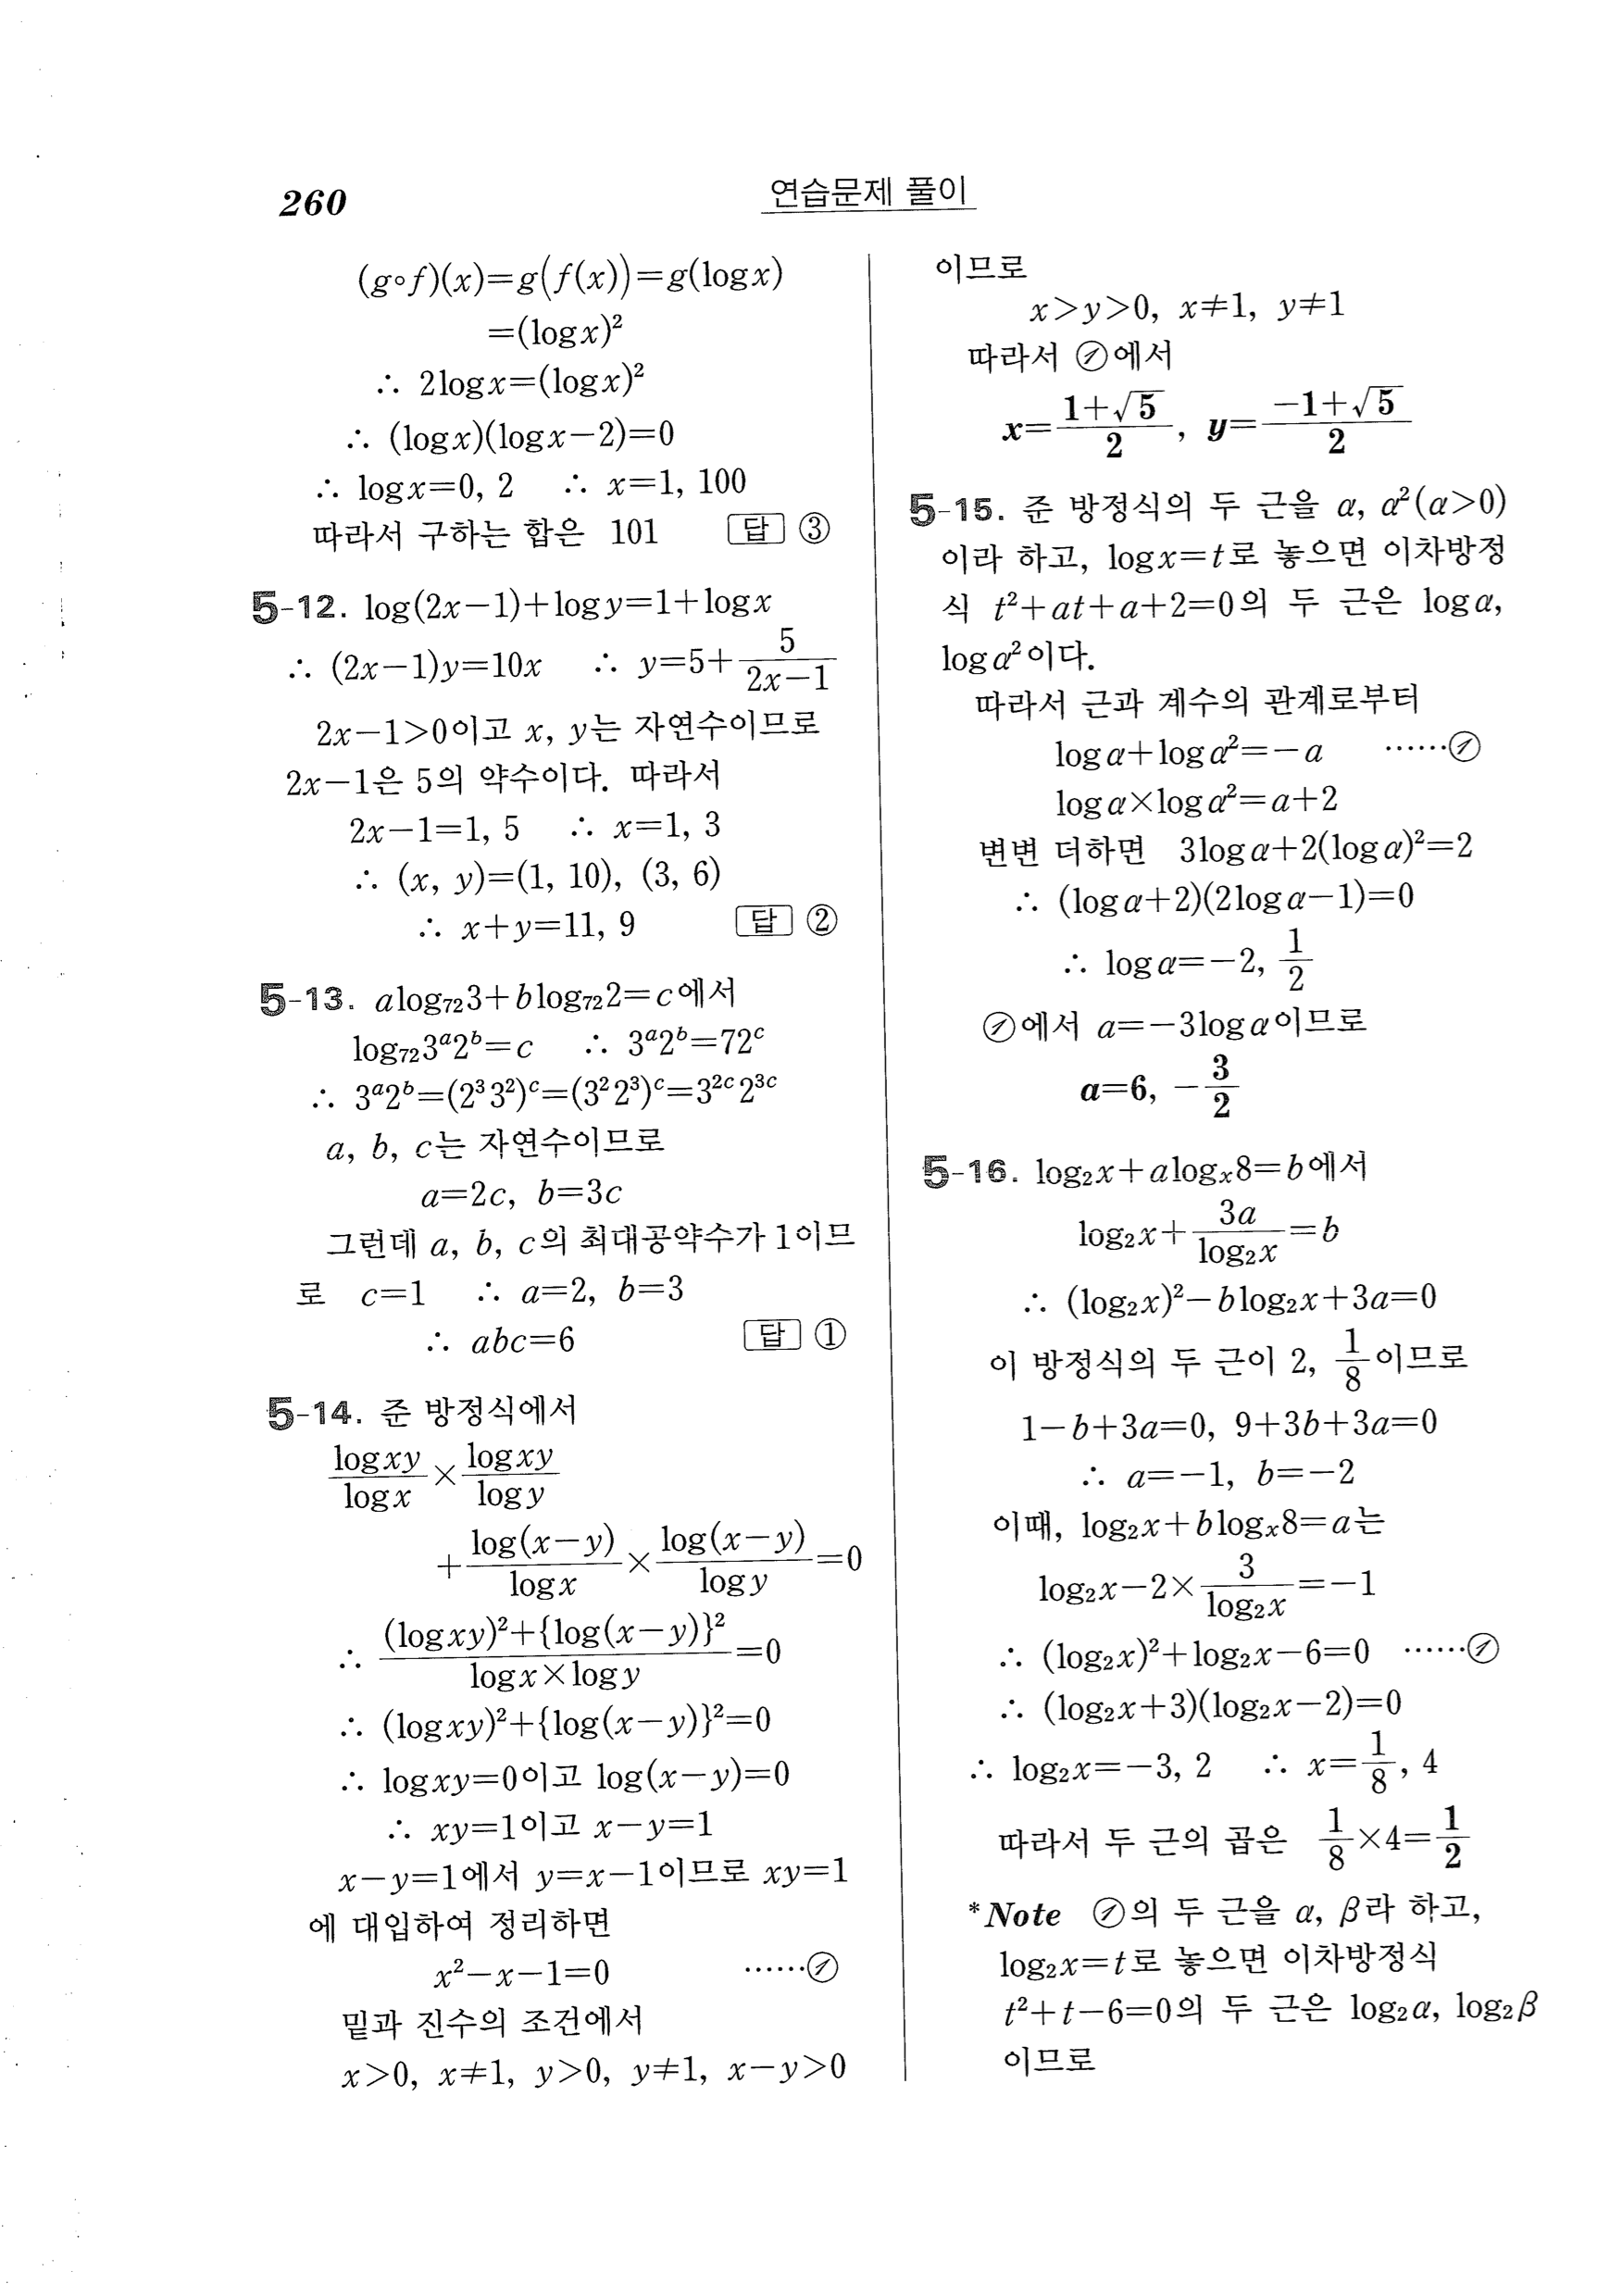 260
연습문제 풀이
(g∘f)(x)=g(f(x))=g(log x)
=(log x)²
∴ 2log x=(log x)²
∴ (log x)(log x−2)=0
∴ log x=0, 2 ∴ x=1, 100
따라서 구하는 합은 101 답 ③
5-12. log(2x−1)+log y=1+log x
∴ (2x−1)y=10x ∴ y=5+5/(2x−1)
2x−1>0이고 x, y는 자연수이므로
2x−1은 5의 약수이다. 따라서
2x−1=1, 5 ∴ x=1, 3
∴ (x, y)=(1, 10), (3, 6)
∴ x+y=11, 9 답 ②
5-13. a log₇₂3+b log₇₂2=c에서
log₇₂3ᵃ2ᵇ=c ∴ 3ᵃ2ᵇ=72ᶜ
∴ 3ᵃ2ᵇ=(2³3²)ᶜ=(3²2³)ᶜ=3²ᶜ2³ᶜ
a, b, c는 자연수이므로
a=2c, b=3c
그런데 a, b, c의 최대공약수가 1이므
로 c=1 ∴ a=2, b=3
∴ abc=6 답 ①
5-14. 준 방정식에서
(log xy)/(log x)×(log xy)/(log y)
+(log(x−y))/(log x)×(log(x−y))/(log y)=0
∴ ((log xy)²+{log(x−y)}²)/(log x×log y)=0
∴ (log xy)²+{log(x−y)}²=0
∴ log xy=0이고 log(x−y)=0
∴ xy=1이고 x−y=1
x−y=1에서 y=x−1이므로 xy=1
에 대입하여 정리하면
x²−x−1=0 ······㉠
밑과 진수의 조건에서
x>0, x≠1, y>0, y≠1, x−y>0
이므로
x>y>0, x≠1, y≠1
따라서 ㉠에서
x=(1+√5)/2, y=(−1+√5)/2
5-15. 준 방정식의 두 근을 α, α²(α>0)
이라 하고, log x=t로 놓으면 이차방정
식 t²+at+a+2=0의 두 근은 log α,
log α²이다.
따라서 근과 계수의 관계로부터
log α+log α²=−a ······㉠
log α×log α²=a+2
변변 더하면 3log α+2(log α)²=2
∴ (log α+2)(2log α−1)=0
∴ log α=−2, 1/2
㉠에서 a=−3log α이므로
a=6, −3/2
5-16. log₂x+a logₓ8=b에서
log₂x+3a/(log₂x)=b
∴ (log₂x)²−b log₂x+3a=0
이 방정식의 두 근이 2, 1/8이므로
1−b+3a=0, 9+3b+3a=0
∴ a=−1, b=−2
이때, log₂x+b logₓ8=a는
log₂x−2×3/(log₂x)=−1
∴ (log₂x)²+log₂x−6=0 ······㉠
∴ (log₂x+3)(log₂x−2)=0
∴ log₂x=−3, 2 ∴ x=1/8, 4
따라서 두 근의 곱은 1/8×4=1/2
*Note ㉠의 두 근을 α, β라 하고,
log₂x=t로 놓으면 이차방정식
t²+t−6=0의 두 근은 log₂α, log₂β
이므로